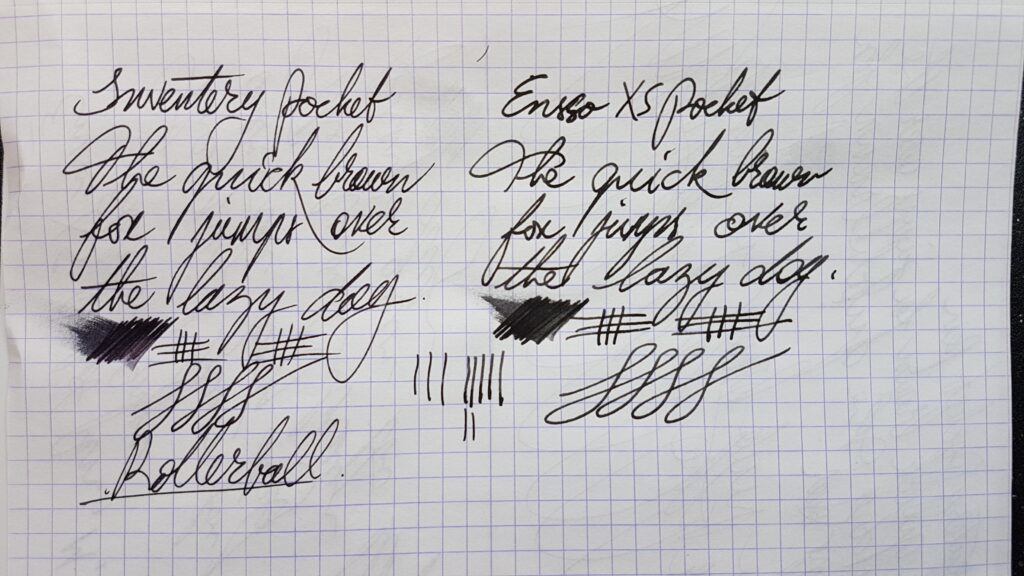 Inventery pocket
The quick brown
fox jumps over
the lazy dog.
Rollerball.
Ensso XS pocket
The quick brown
fox jumps over
the lazy dog.